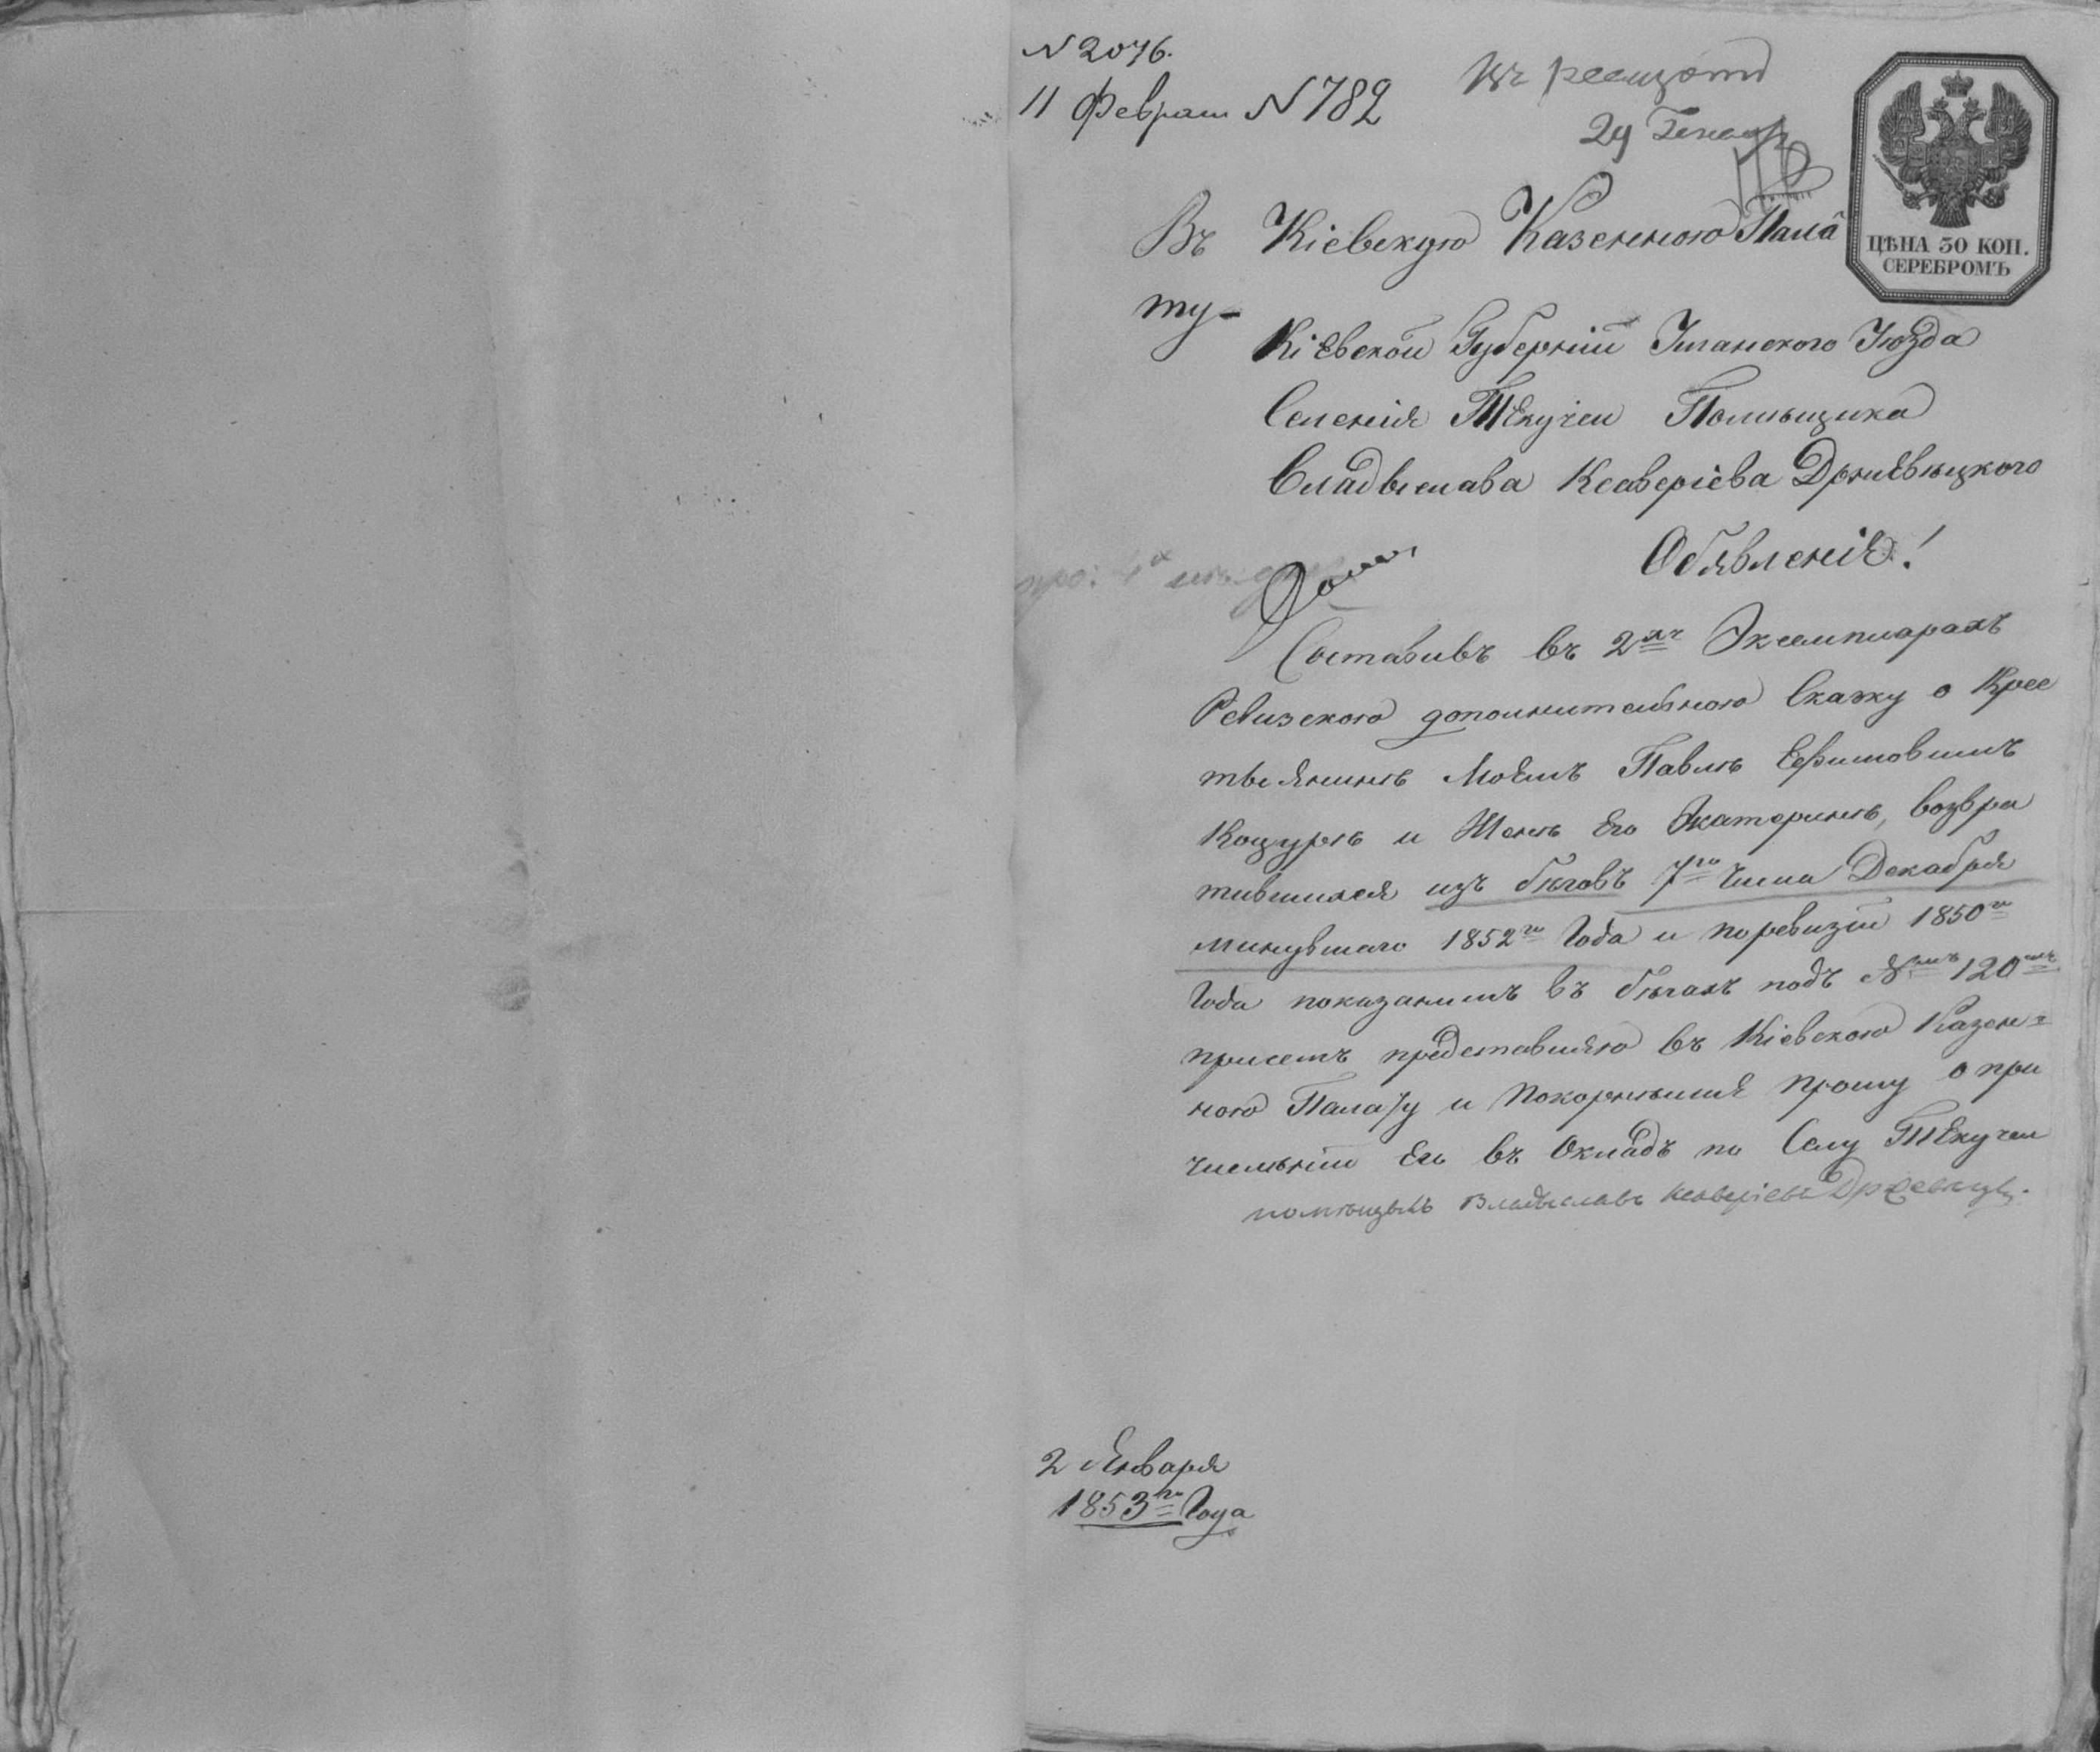 N 2076.
11 Февраля N 782
29 Генваря
ЦѢНА 30 КОП.
СЕРЕБРОМЪ
Въ Кіевскую Казенною Пала
ту-
Кіевской Губерніи Уманского Уѣзда
Селенія Текучеи Помѣщика
Владыслава Ксаверіева
Обявленіе!
Составивъ въ 2хъ Экземпларахъ
Ревизскою дополнительною Скажку о Крес
тьянинѣ Моемъ Павлѣ Ефимовимъ
Коцурѣ и Женѣ Его Екатеринѣ, возвра
тившихся изъ бѣговъ 7го Числа Декабря
минувшаго 1852го Года и поревизіи 1850го
Года показаннимъ въ бѣгахъ подъ Nмъ 120мъ
присемъ представляю въ Кіевскою Казен=
ною Палату и Покорнѣише прошу о при
числѣніи Ег въ Окладъ по Селу Текучеи
помѣщикъ Владыславъ Ксаверіевъ
2 Января
1853го Года